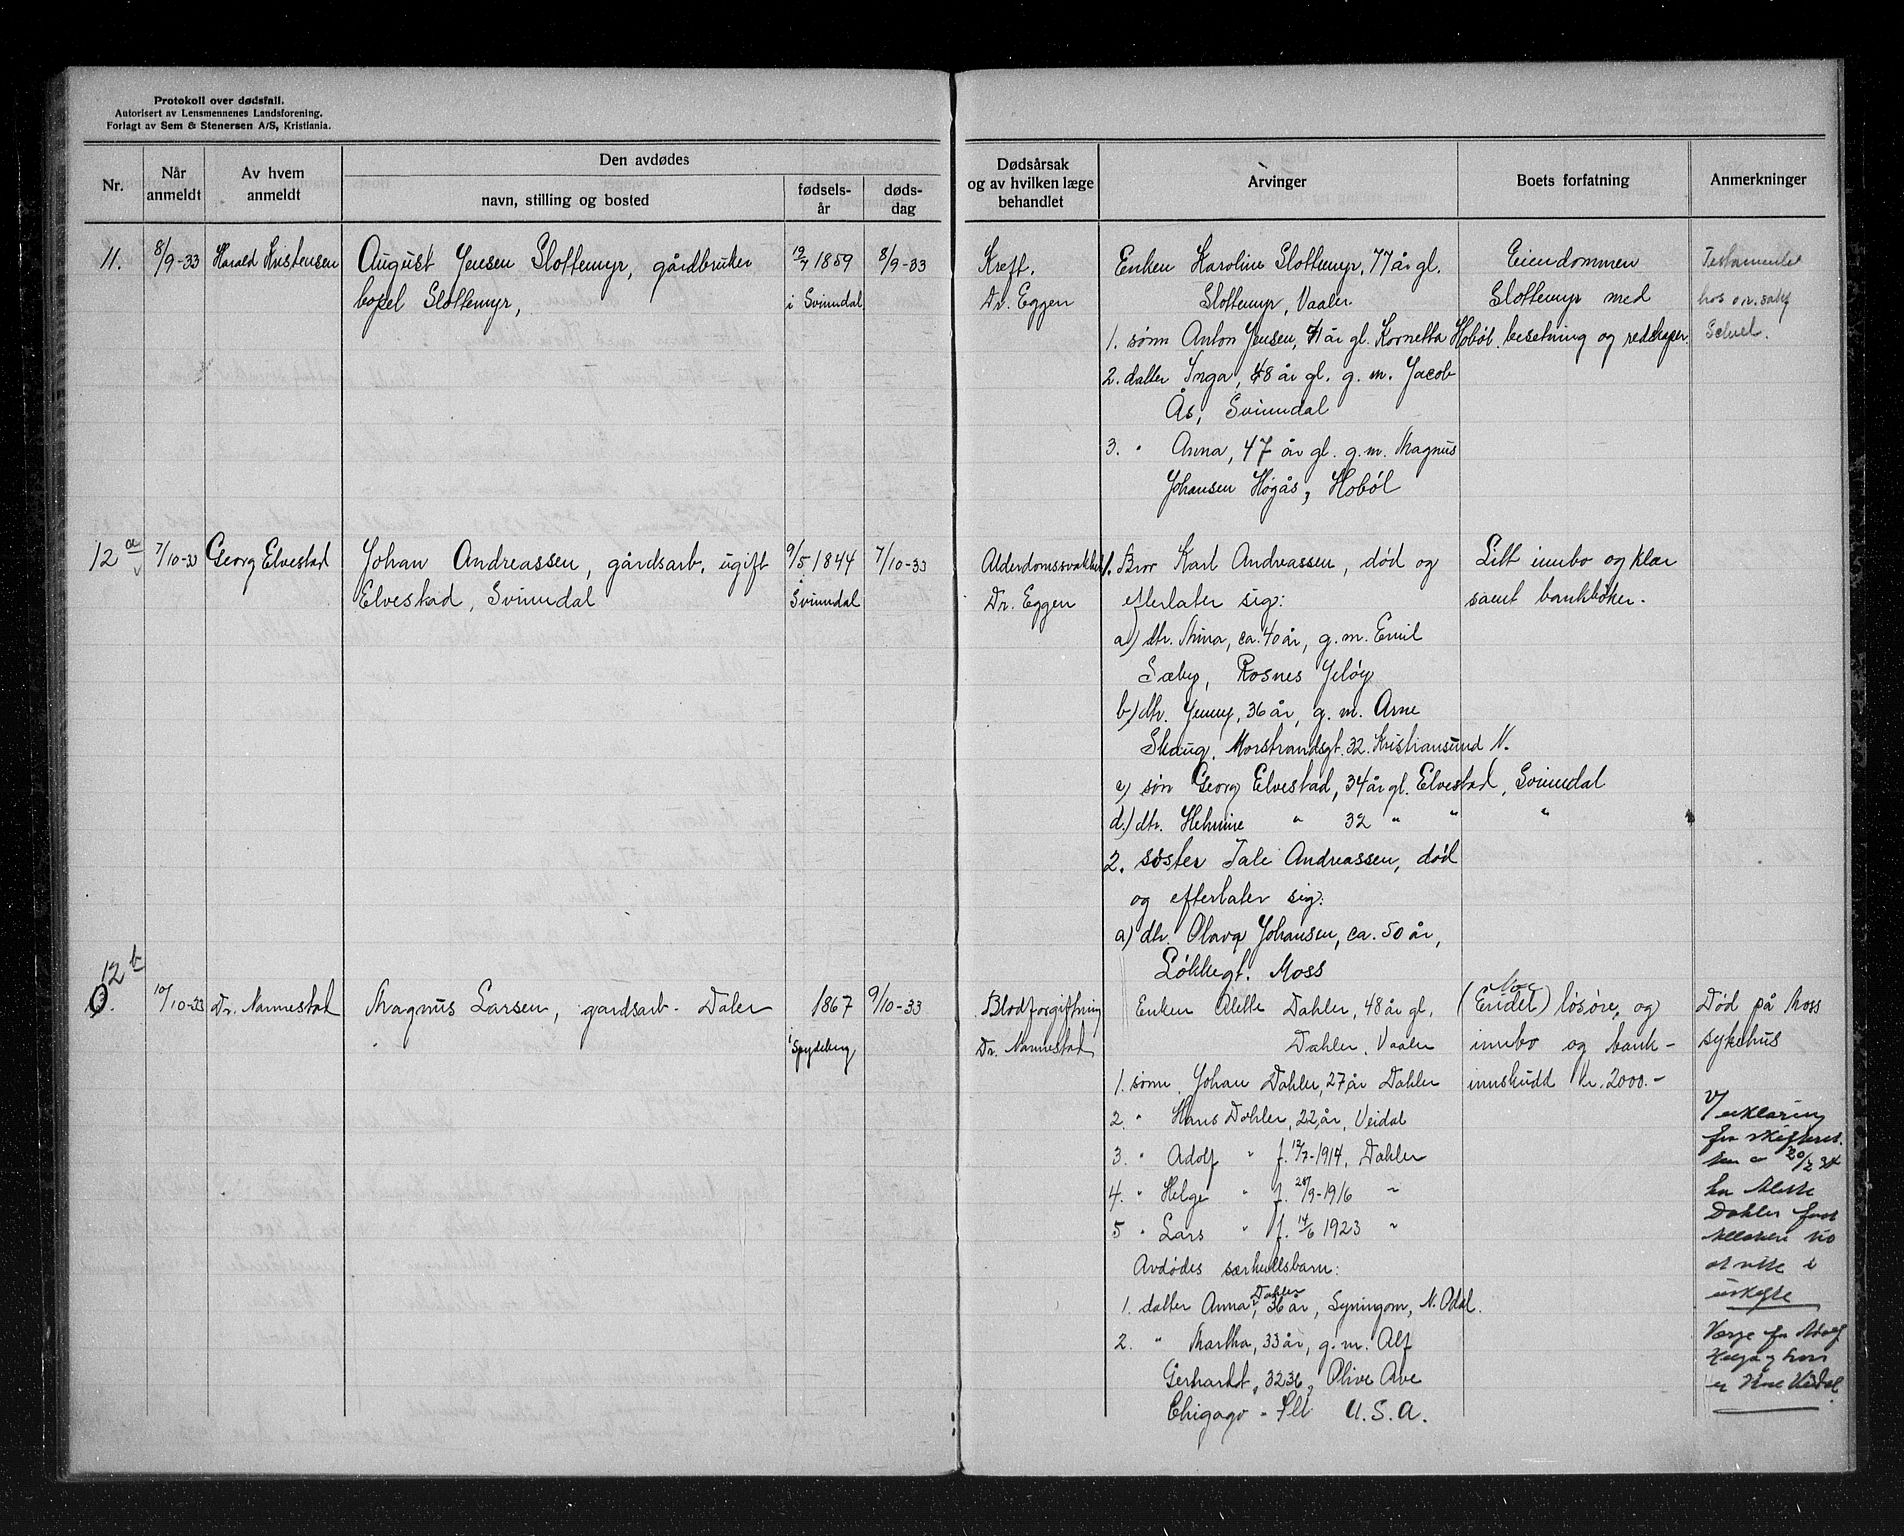 Protokoll over dødsfall.
Autorisert av Lensmennenes Landsforening.
Forlagt av Sem & Stenersen A/S, Kristiania.
Nr.
Når anmeldt
Av hvem anmeldt
Den avdødes
navn, stilling og bosted
fødsels-
år
døds-
dag
Dødsårsak
og av hvilken læge
behandlet
Arvinger
Boets forfatning
Anmerkninger
11.
8/9-33
Harald Kristensen
August Jensen Slottemyr, gårdbruker
bopel Slottemyr,
19/7 1859
i Svinndal
8/9-33
Kreft.
Dr. Eggen
Enken Karoline Slottemyr, 77 år gl.
Slottemyr, Vaaler.
1. sønn Anton Jensen, år gl. Kornetta Hobøl.
2. datter Inga, 48 år gl. g. m. Jacob
Ås, Svinndal
3. " Anna, 47 år gl. g. m. Magnus
Johansen Høgås, Hobøl
Eiendommen
Slottemyr med
besetning og redskaper
Testamentet
hos
12 a
7/10-33
Georg Elvestad
Johan Andreassen, gårdsarb. ugift
Elvestad, Svinndal
9/5 1844
i Svinndal
7/10-33
Alderdomssvakhet
Dr. Eggen
1. Bror Karl Andreassen, død og
efterlater sig:
a) dtr. Anna, ca. 40 år, g. m. Emil
Sæby, Rosnes Jeløy
b) dtr. Jenny, 36 år, g. m. Arne
Skaug, Morstrandsgt. 32. Kristiansund N.
c) søn Georg Elvestad, 34 år gl. Elvestad, Svinndal
d.) dtr. Helmine " 32 " " "
2. søster Tale Andreassen, død
og efterlater sig:
a) dtr. Olava Johansen, ca. 50 år,
Løkkegt. Moss
Litt innbo og klær
samt bankbøker.
12 b
10/10-33
Dr. Nannestad
Magnus Larsen, gårdsarb. Daler
1867
i Spydeberg
9/10-33
Blodforgiftning
Dr. Nannestad
Enken Alette Dahler, 48 år gl.
Dahler, Vaaler
1. sønn Johan Dahler, 27 år Dahler
2. " Hans Dahler, 22 år, Veidal
3. " Adolf " f. 12/7-1914, Dahler
4. " Helge " f. 28/9-1916 "
5 " Lars " f. 14/6 1923 "
Avdødes særkullsbarn:
1. datter Anna Dahler, 36 år, Syningom, N. Odal.
2. " Martha, 33 år, g. m. Alf
Gerhardt, 3236, Olive Ave
Chigago - Ill. U. S. A.
Noe
(Endel) løsøre, og
innbo og bank-
innskudd kr. 2000.-
Død på Moss
sykehus
V/ erklæring
fra skifteret-
ten 20/2 34
har Alette
Dahler
uskifte
Verge for Adolf
Helge og Lars
er